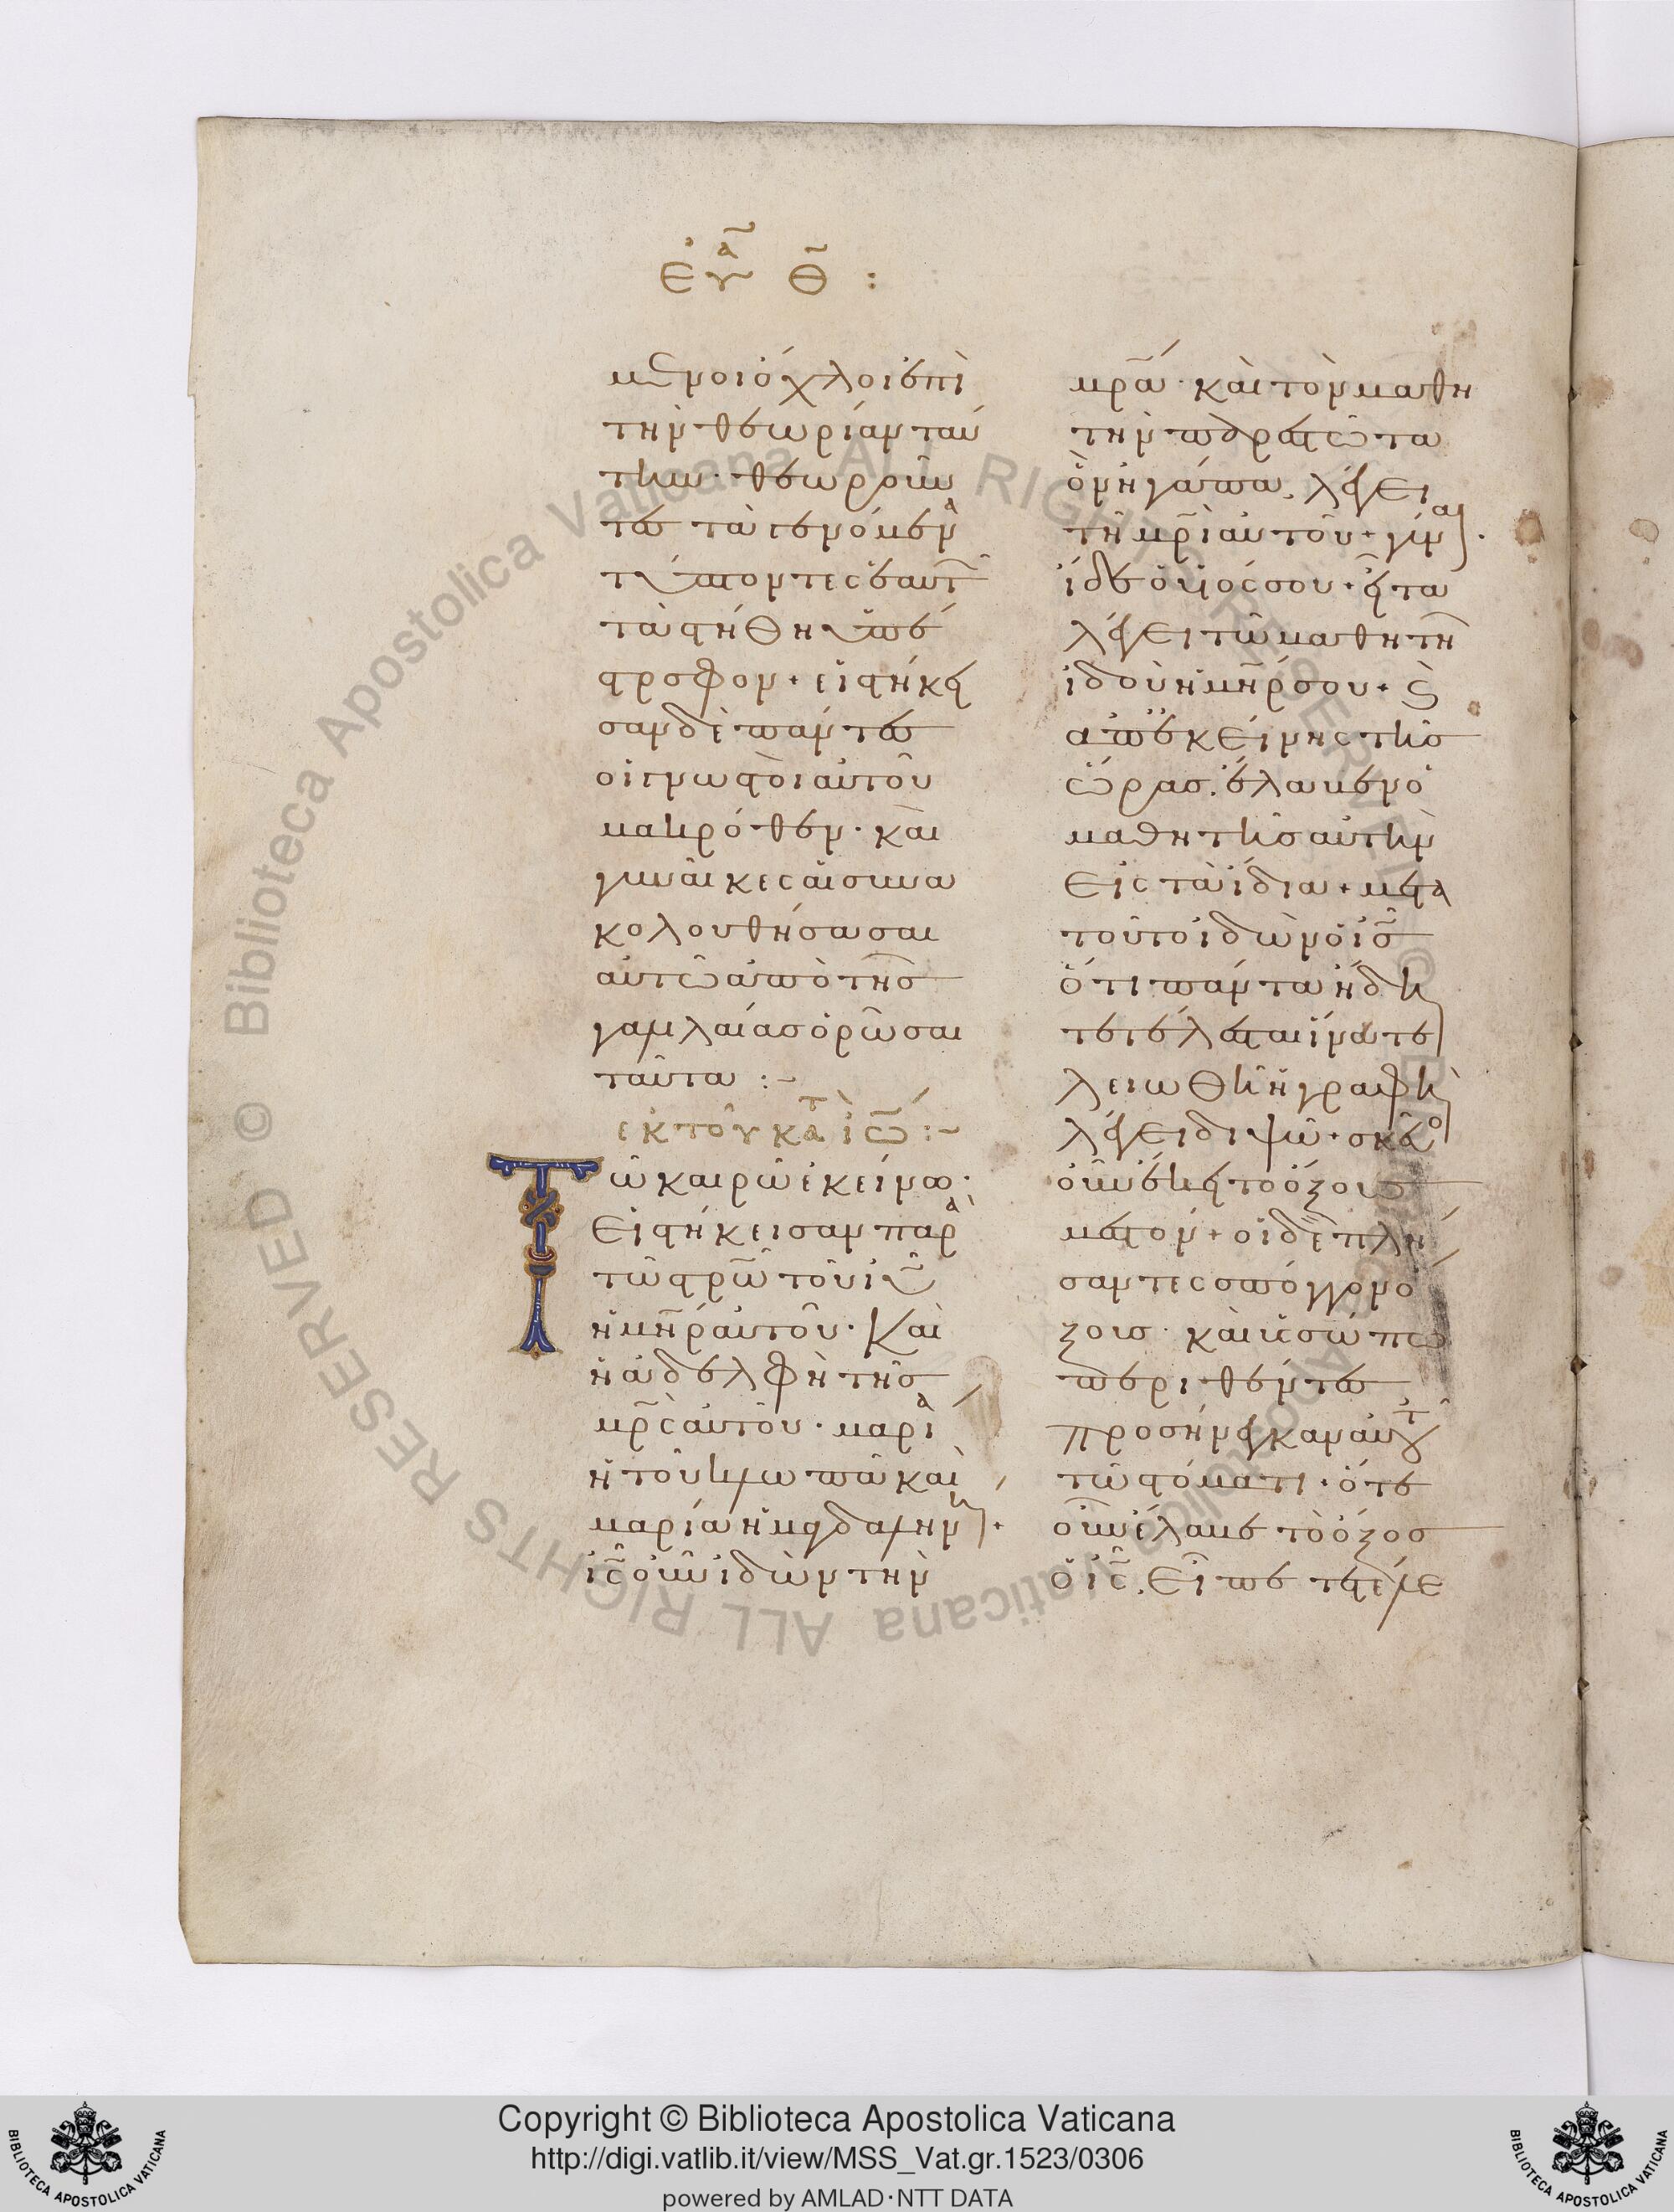 εὐα θ :
μενοι ὄχλοι ἐπὶ
τὴν θεωρίαν ταύ
την· θεωροῦν
τες τὰ γενόμενα
τύπτοντες ἑαυτῶν
τὰ στήθη ὑπέ
στρεφον + εἱστήκει
σαν δὲ πάντες
οἱ γνωστοὶ αὐτοῦ
μακρόθεν· καὶ
γυναῖκες αἱ συνα
κολουθήσασαι
αὐτῶ ἀπὸ τῆς
γαλιλαίας ὁρῶσαι
ταῦτα :-
ἐκ τοῦ κατ ἰω :-
Τῶ καιρῶ ἐκείνω·
Εἱστήκεισαν παρὰ
τῶ στρω τοῦ ιυ
ἡ μηρ αὐτοῦ· Καὶ
ἡ ἀδελφὴ τῆς
μρς αὐτοῦ· μαρία
ἡ τοῦ κλωπᾶ καὶ
μαρία ἡ μαγδαληνή +
ις οὖν ἰδὼν τὴν
μρα· καὶ τὸν μαθη
τὴν παρεστῶτα
ὃν ἠγάπα, λέγει
τῆ μρι αὐτοῦ + γύναι·
ἴδε ὁ υἱός σου + εἶτα
λέγει τῶ μαθητῆ
ἰδοὺ ἡ μηρ σου + καὶ
ἀπ' ἐκείνης τῆς
ὥρας. ἔλαβεν ὁ
μαθητὴς αὐτὴν
Εἰς τὰ ἴδια + μετὰ
τοῦτο ἰδὼν ὁ ις
ὅτι πάντα ἤδη
τετέλεσται ἵνα τε
λειωθῆ ἡ γραφὴ
λέγει διψῶ + σκεῦος
οὖν ἔκειτο ὄξους
μεστόν + οἱ δὲ πλή
σαντες σπόγγον ὄ
ξους· καὶ ὑσσώπω
περιθέντες
προσήνεγκαν αὐτοῦ
τῶ στόματι· ὅτε
οὖν ἔλαβε τὸ ὄξος
ὁ ις. Εἶπε τετέλε
Copyright © Biblioteca Apostolica Vaticana
http://digi.vatlib.it/view/MSS_Vat.gr.1523/0306
powered by AMLAD·NTT DATA
BIBLIOTECA APOSTOLICA VATICANA
BIBLIOTECA APOSTOLICA VATICANA
© Biblioteca Apostolica Vaticana ALL RIGHTS RESERVED
© Biblioteca Apostolica Vaticana ALL RIGHTS RESERVED